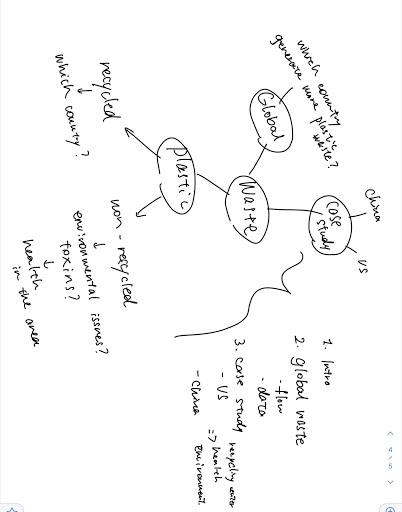 China
US
case
study
which country
generate more plastic
waste?
Global
Waste
plastic
recycled
which country?
non-recycled
environmental issues?
toxins?
health
in the area
1. Intro
2. global waste
- flow
- data
3. case study
- US
- China
=> health
environment.